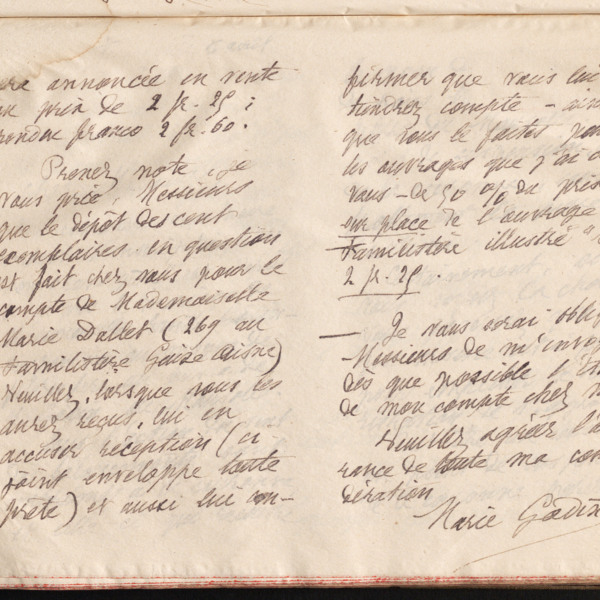 era annoncée en vente
au prix de 2 fr. 25 ;
rendu franco 2 fr. 60.
Prenez note, je
vous prie, Messieurs
que le dépôt des cent
exemplaires en question
est fait chez vous pour le
compte de Mademoiselle
Marie Dallet (269 au
Familistère Guise Aisne)
Veuillez, lorsque vous les
aurez reçus, lui en
accuser réception (ci-
joint enveloppe toute
prête) et aussi lui con-
firmer que vous lui
tiendrez compte - ains
que vous le faites pou
les ouvrages que j'ai c
vous - de 50 % du prix
sur place de l'ouvrage
Familistère illustré "
2 fr. 25.
— Je vous serai oblig
Messieurs de m'envo
dès que possible l'
de mon compte chez v
Veuillez agréer l'a
rance de toute ma con
sidération
Marie Godin